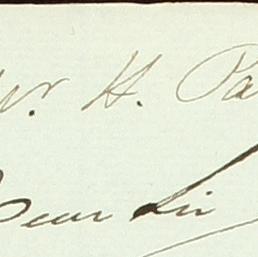 Mr. H. Pa
Dear Sir